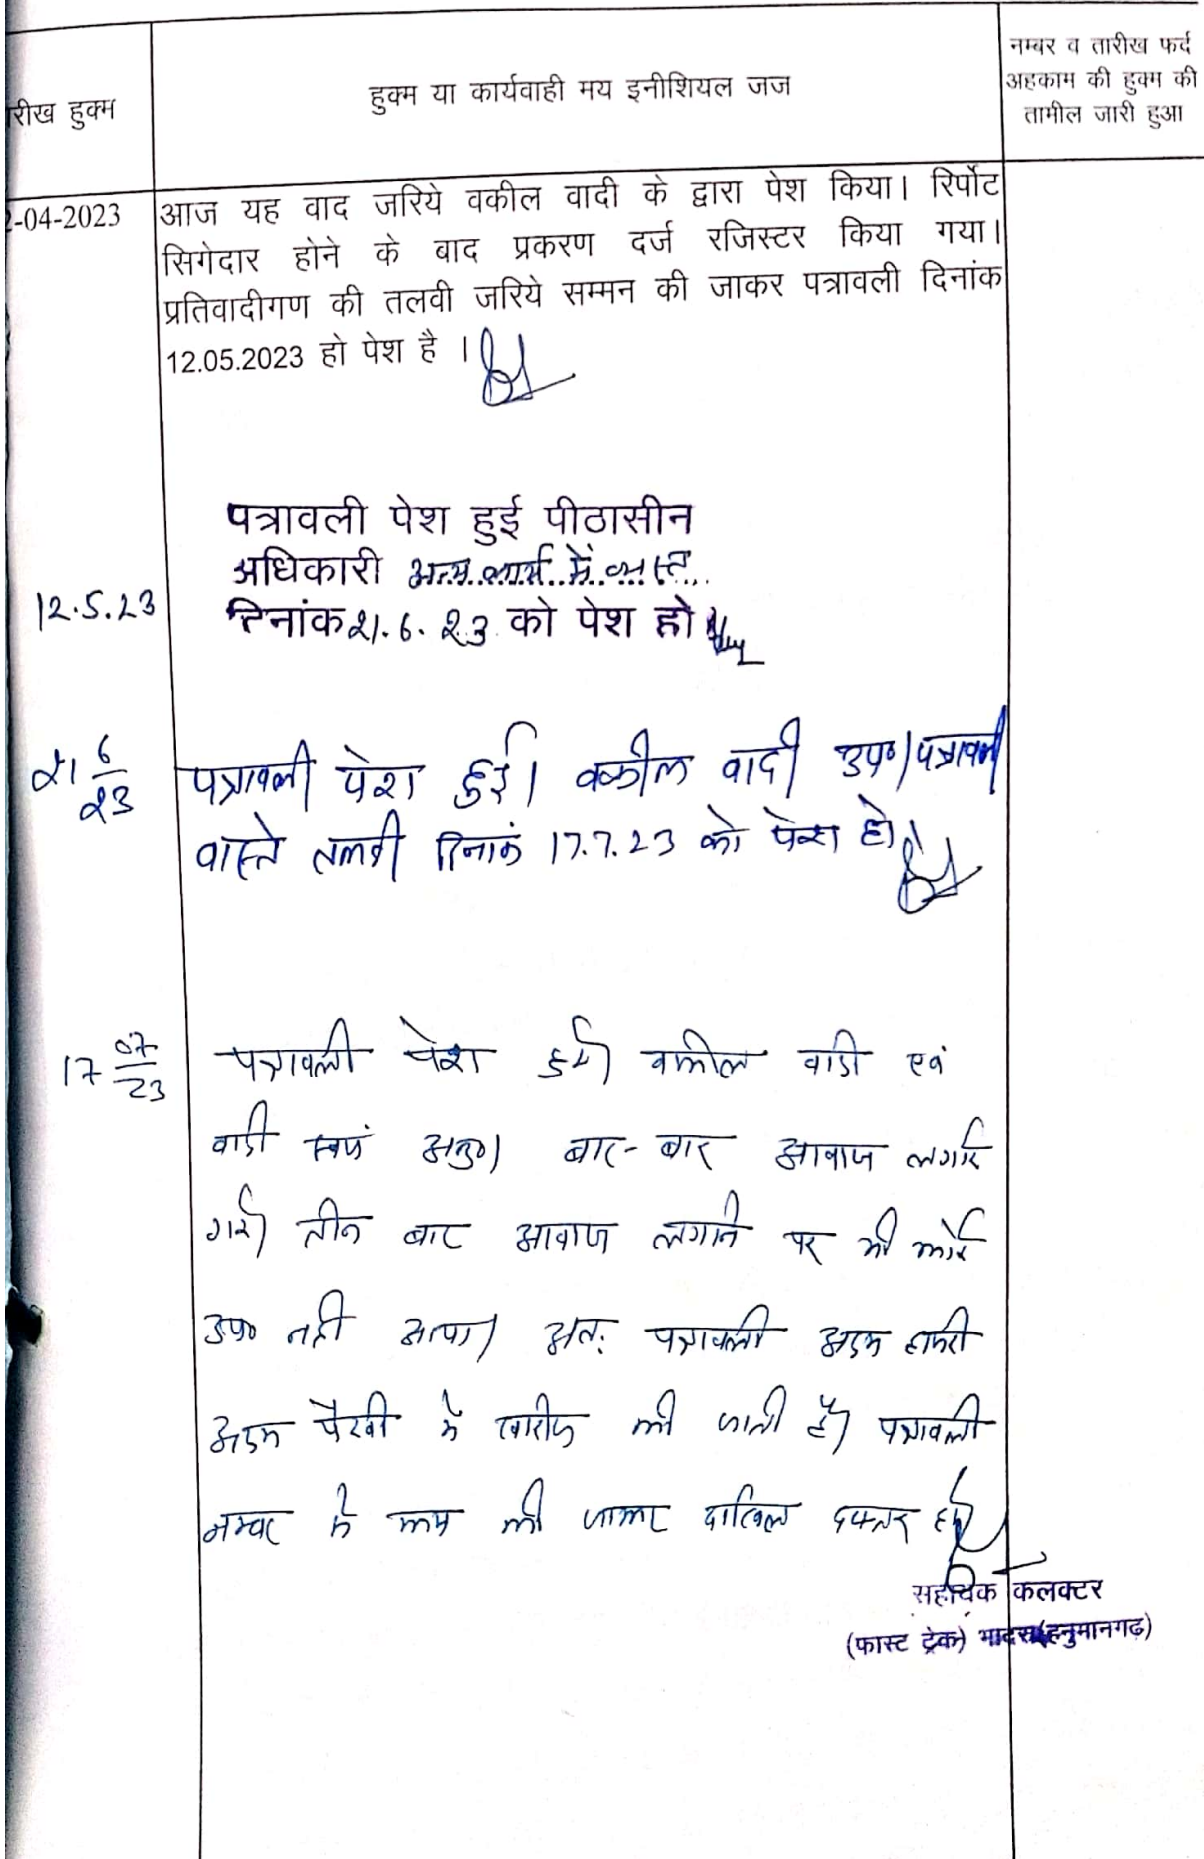 रीख हुक्म
हुक्म या कार्यवाही मय इनीशियल जज
नम्बर व तारीख फर्द
अहकाम की हुक्म की
तामील जारी हुआ
2-04-2023
आज यह वाद जरिये वकील वादी के द्वारा पेश किया। रिर्पोट
सिगेदार होने के बाद प्रकरण दर्ज रजिस्टर किया गया।
प्रतिवादीगण की तलवी जरिये सम्मन की जाकर पत्रावली दिनांक
12.05.2023 हो पेश है ।
पत्रावली पेश हुई पीठासीन
अधिकारी अन्य कार्य में व्यस्त
12.5.23
दिनांक 21.6.23 को पेश हो
21 6/23
पत्रावली पेश हुई। वकील वादी उप०। पत्रावली
वास्ते तलवी दिनांक 17.7.23 को पेश हो।
17 07/23
पत्रावली पेश हुयी। वकील वादी एवं
वादी स्वयं अनु०। बार-बार आवाज लगाई
गयी। तीन बार आवाज लगाने पर भी कोई
उप० नही आया। अतः पत्रावली अदम हाजरी
अदम पैरवी में खारीज की जाती है। पत्रावली
नम्बर से कम की जाकर दाखिल दफ्तर हो।
सहायक कलक्टर
(फास्ट ट्रेक) भादरा(हनुमानगढ़)